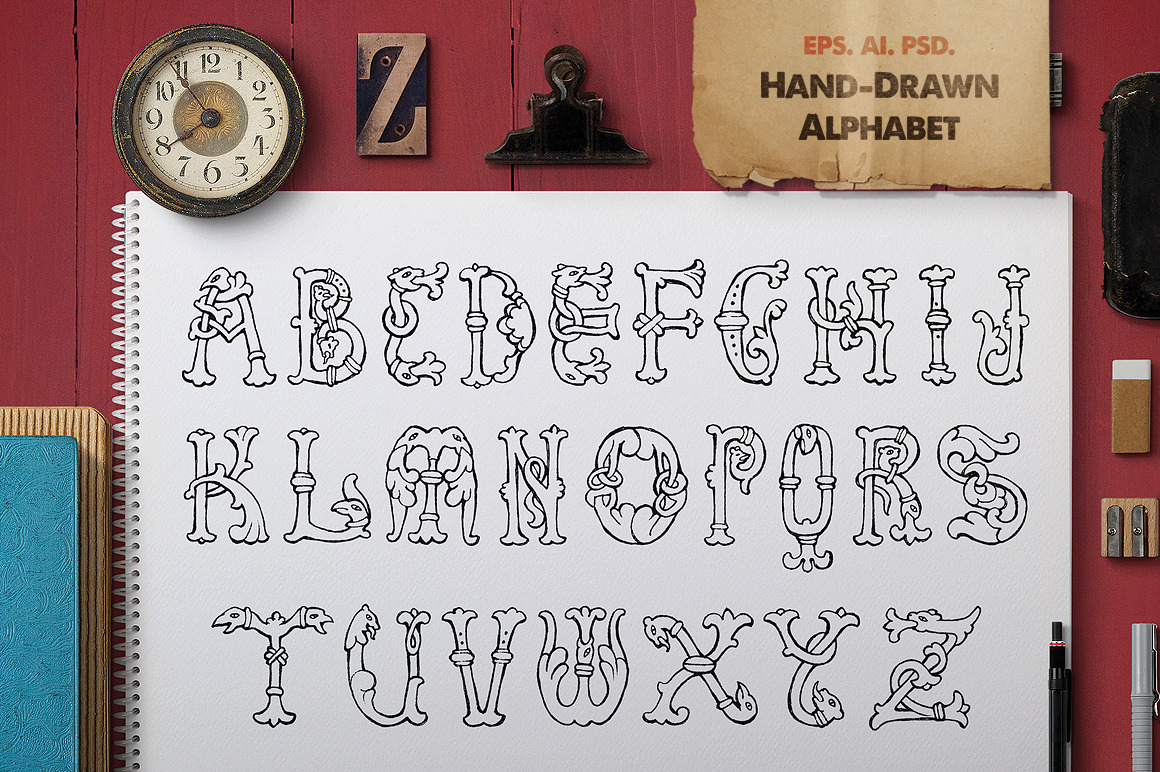 12 1 2 3 4 5 6 7 8 9 10 11
Z
EPS. AI. PSD.
HAND-DRAWN
ALPHABET
A B C D E F G H I J
K L M N O P Q R S
T U V W X Y Z